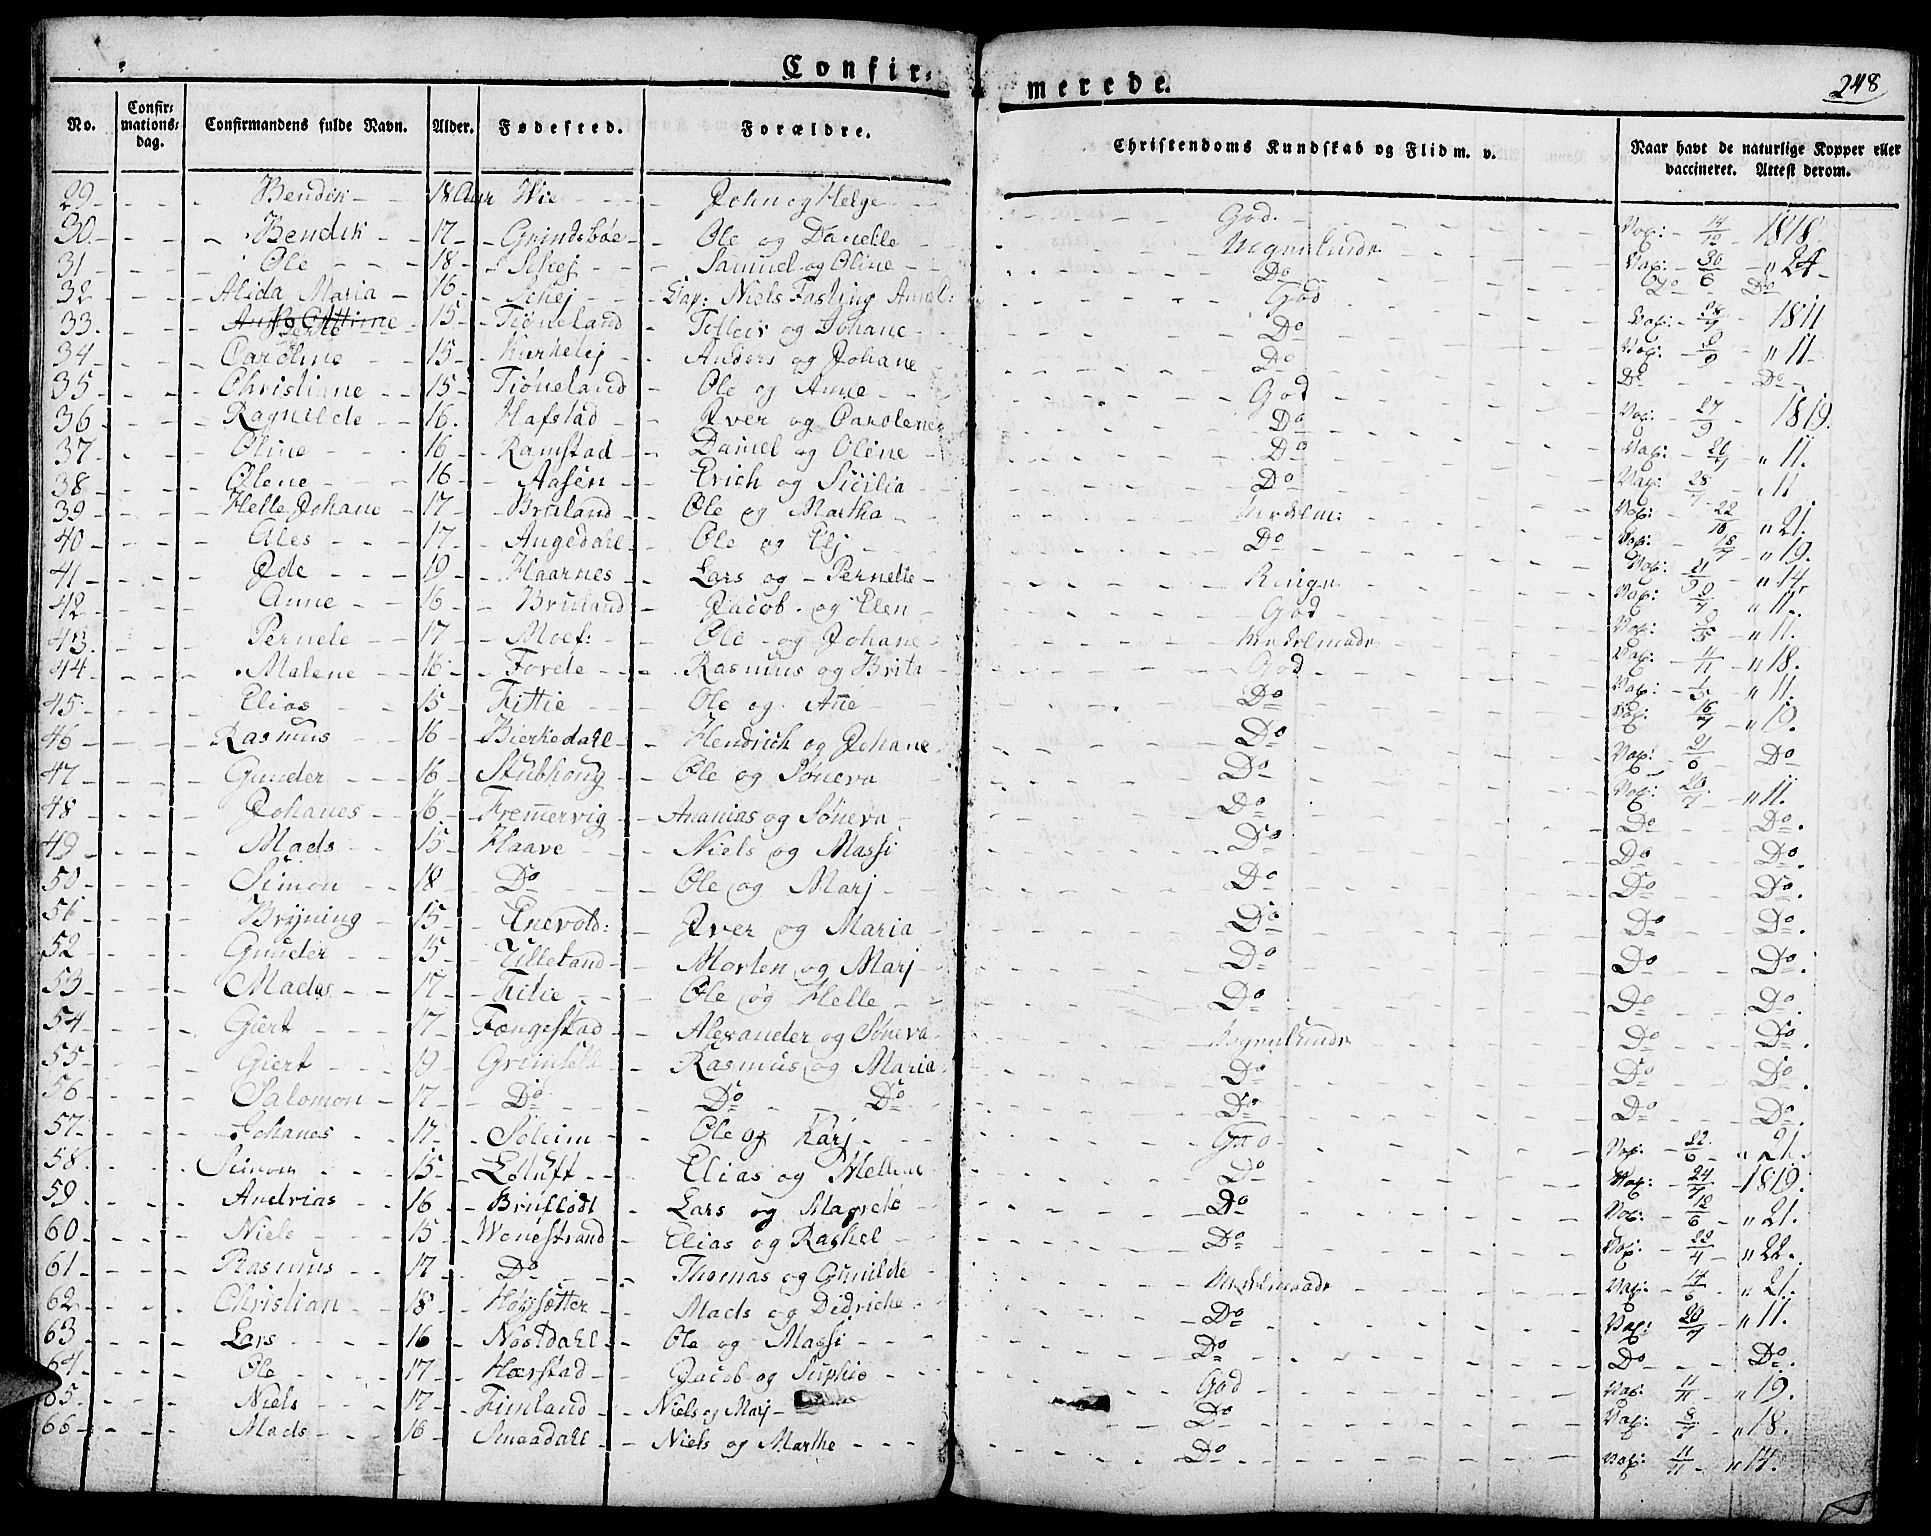 Confir- merede. 248
No. Confirmationsdag. Confirmandens fulde Navn. Alder. Fødested. Forældre. Christendoms Kundskab og Flid m. v. Naar havt de naturlige Kopper eller vaccineret. Attest derom.
29 Bendik 18 Aar Wie John og Helge God. Vax: 14/12 1818
30. Bendik 17 Grindsbøe Ole og Danelle Vax: 30/6 " 24
31 Ole 18 Schej Samuel og Oline Do Do Do
32 Alida Maria 16 Schej Cap: Niels Fasting God Vax: 28/9 1811
33. Berthe 15 Tiøneland Tollev og Johane Do Vax: " 11
34 Caroline 15 Kirkelej Anders og Johane Do Do Do
35 Christiane 15 Tiøneland Ole og Anne God Vax: 27/9 1819.
36 Ragnilde 16. Hafstad Iver og Carolene Do Vax: " 11.
37 Oline 16 Ramstad Daniel og Olene Do Vax: 28/7 " 11
38 Olene 16 Aasen Erich og Sicilia Do Vax: 22/10 " 21.
39 Helle Johane 17 Bruland Ole og Martha Vax: 18/7 " 19.
40 Ales 17 Angedahl Ole og Elj Do Vax: " 14
41 Ide 19 Haarnes Lars og Pernelle Ringe Vax: " 11.
42 Anne 16 Bruland Jacob og Elen God Vax: " 11.
43. Pernele 17 Moef: Ole og Johane Vax: 11/11 " 18.
44 Malene 16 Forde Rasmus og Brita God Vax: " 11.
45 Elias 15 Fittie Ole og Añe Do Vax: 16/7 " 19.
46 Rasmus 16 Bierkedahl Hendrich og Johane Do Vax: 21/6 Do
47 Gunder 16 Stubhoug Ole og Søneva Do Vax: 20/7 " 11.
48 Johanes 16. Fremervig Ananias og Søneva Do Do Do.
49 Mads 15 Haave Niels og Massi Do Do Do.
50 Simon 18 Do Ole og Marj Do Do Do.
51 Bryning 15 Enevold: Iver og Maria Do Do Do.
52 Gunder 15 Lilleland Morten og Marj Do Do Do.
53 Mads 17 Fitie Ole og Helle Do Do Do.
54 Giert 17 Fængestad Alexander og Søneva Do Do.
55 Giert 19 Rasmus og Maria Do Do Do.
56 Salomon 17 Do Do Do Do Do Do.
57 Johanes 17 Soleim Ole og Karj God Vax: 22/6 " 21.
58. Simon 15 Loluft Elias og Mellene Do Vax: 24/7 1819.
59 Andrias 16 Bruflodt Lars og Magrete Do Vax: 12/6 " 21.
60 Niels 15 Wonestrand Elias og Rachel Do Vax: 22/4 " 22.
61 Rasmus 17 Do Thomas og Gunilde Vax: 14/6 " 21.
62 Christian 18 Høysetter Mads og Didriche Do Vax: 20/7 " 11.
63 Lars 16 Nostdahl Ole og Massi Do Do Do.
64 Ole 17 Hærstad Jacob og Sophie God Vax: 11/11 " 19.
65. Niels 17 Fimland Niels og Marj Do Vax: 8/7 " 18.
66 Mads 16 Smaadahl Niels og Marthe Do Vax: 11/11 " 14.